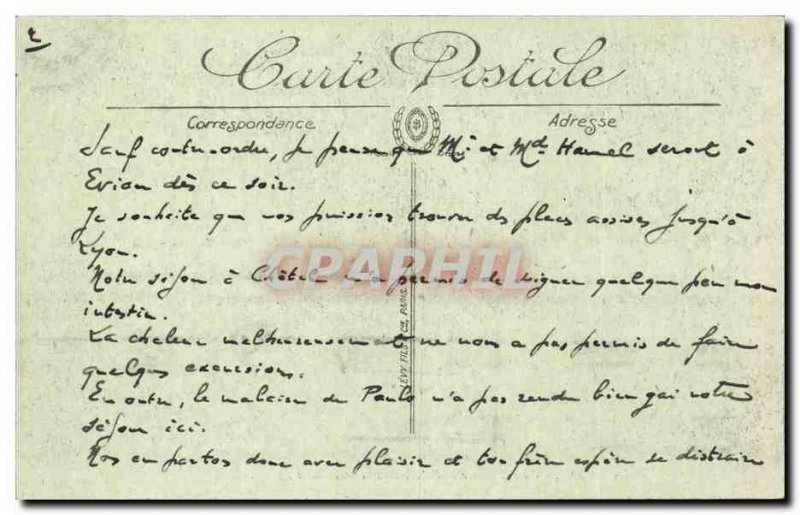 2
Carte Postale
Correspondance
Adresse
Sauf contre-ordre, je pense que Mr et Md Hamel seront à
Evian dès ce soir.
Je souhaite que vous puissiez trouver des places assises jusqu'à
Lyon.
Notre séjour à Châtel m'a permis de soigner quelque peu mon
intestin.
La chaleur malheureusement ne nous a pas permis de faire
quelques excursions.
En outre, le malaise de Paulo n'a pas rendu bien gai notre
séjour ici.
Nous en partons donc avec plaisir et ton frère espère se distraire
CPARPHIL
LEVY FILS & Cie, PARIS